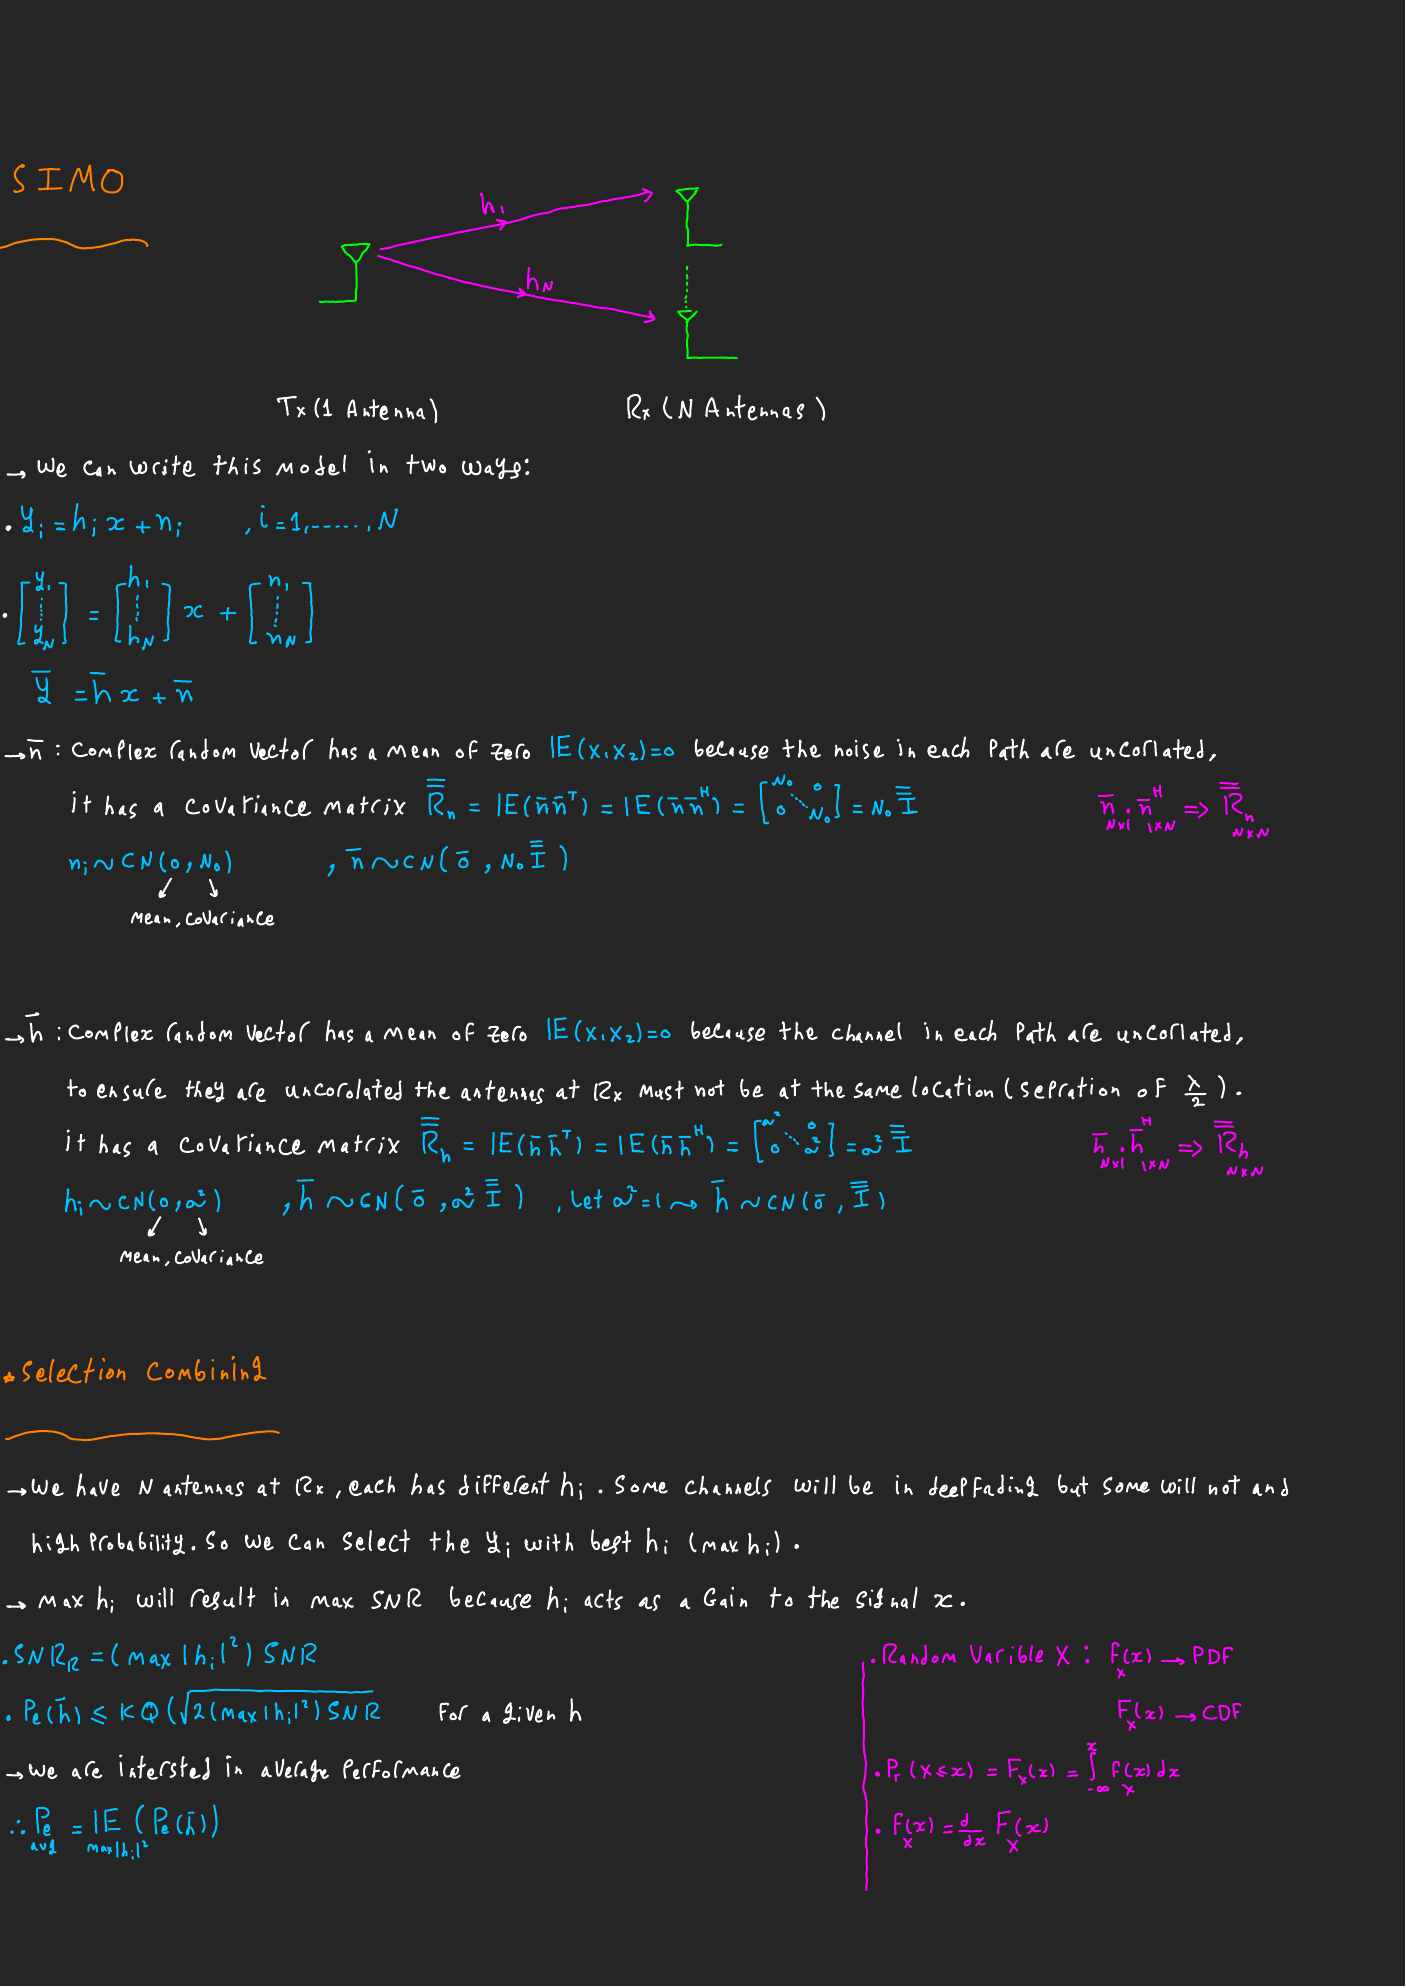 SIMO
h₁
h_N
Tx (1 Antenna) Rx (N Antennas)
→ we can write this model in two ways:
. y_i = h_i x + n_i , i = 1, ......, N
. [y₁ ⋮ y_N] = [h₁ ⋮ h_N] x + [n₁ ⋮ n_N]
ȳ = h̄ x + n̄
→ n̄ : Complex random Vector has a mean of zero 𝔼(x₁x₂)=0 because the noise in each Path are uncorlated,
it has a covariance matrix R̿_n = 𝔼(n̄ n̄ᵀ) = 𝔼(n̄ n̄ᴴ) = [N₀ 0 ⋱ 0 N₀] = N₀ I̿
n̄ . n̄ᴴ => R̿_n
N×1 1×N N×N
n_i ~ CN(0, N₀) , n̄ ~ CN(0̄, N₀ I̿)
mean, covariance
→ h̄ : Complex random Vector has a mean of zero 𝔼(x₁x₂)=0 because the channel in each Path are uncorlated,
to ensure they are uncorolated the antennas at Rx must not be at the same location (sepration of λ/2).
it has a covariance matrix R̿_h = 𝔼(h̄ h̄ᵀ) = 𝔼(h̄ h̄ᴴ) = [σ² 0 ⋱ 0 σ²] = σ² I̿
h̄ . h̄ᴴ => R̿_h
N×1 1×N N×N
h_i ~ CN(0, σ²) , h̄ ~ CN(0̄, σ² I̿) , let σ² = 1 → h̄ ~ CN(0̄, I̿)
mean, covariance
* Selection Combining
→ We have N antennas at Rx, each has different h_i. Some channels will be in deep fading but some will not and
high Probability. So we can select the y_i with best h_i (max h_i).
→ max h_i will result in max SNR because h_i acts as a Gain to the signal x.
. SNR_R = (max |h_i|²) SNR
. Pe(h̄) ≤ K Q(√2(max|h_i|²) SNR For a given h
→ we are intersted in average Performance
∴ Pe avg = 𝔼 max|h_i|² (Pe(h̄))
. Random Varible X : f_X(x) → PDF
F_X(x) → CDF
. Pr (X ≤ x) = F_X(x) = ∫_{-∞}^{x} f_X(x) dx
. f_X(x) = d/dx F_X(x)